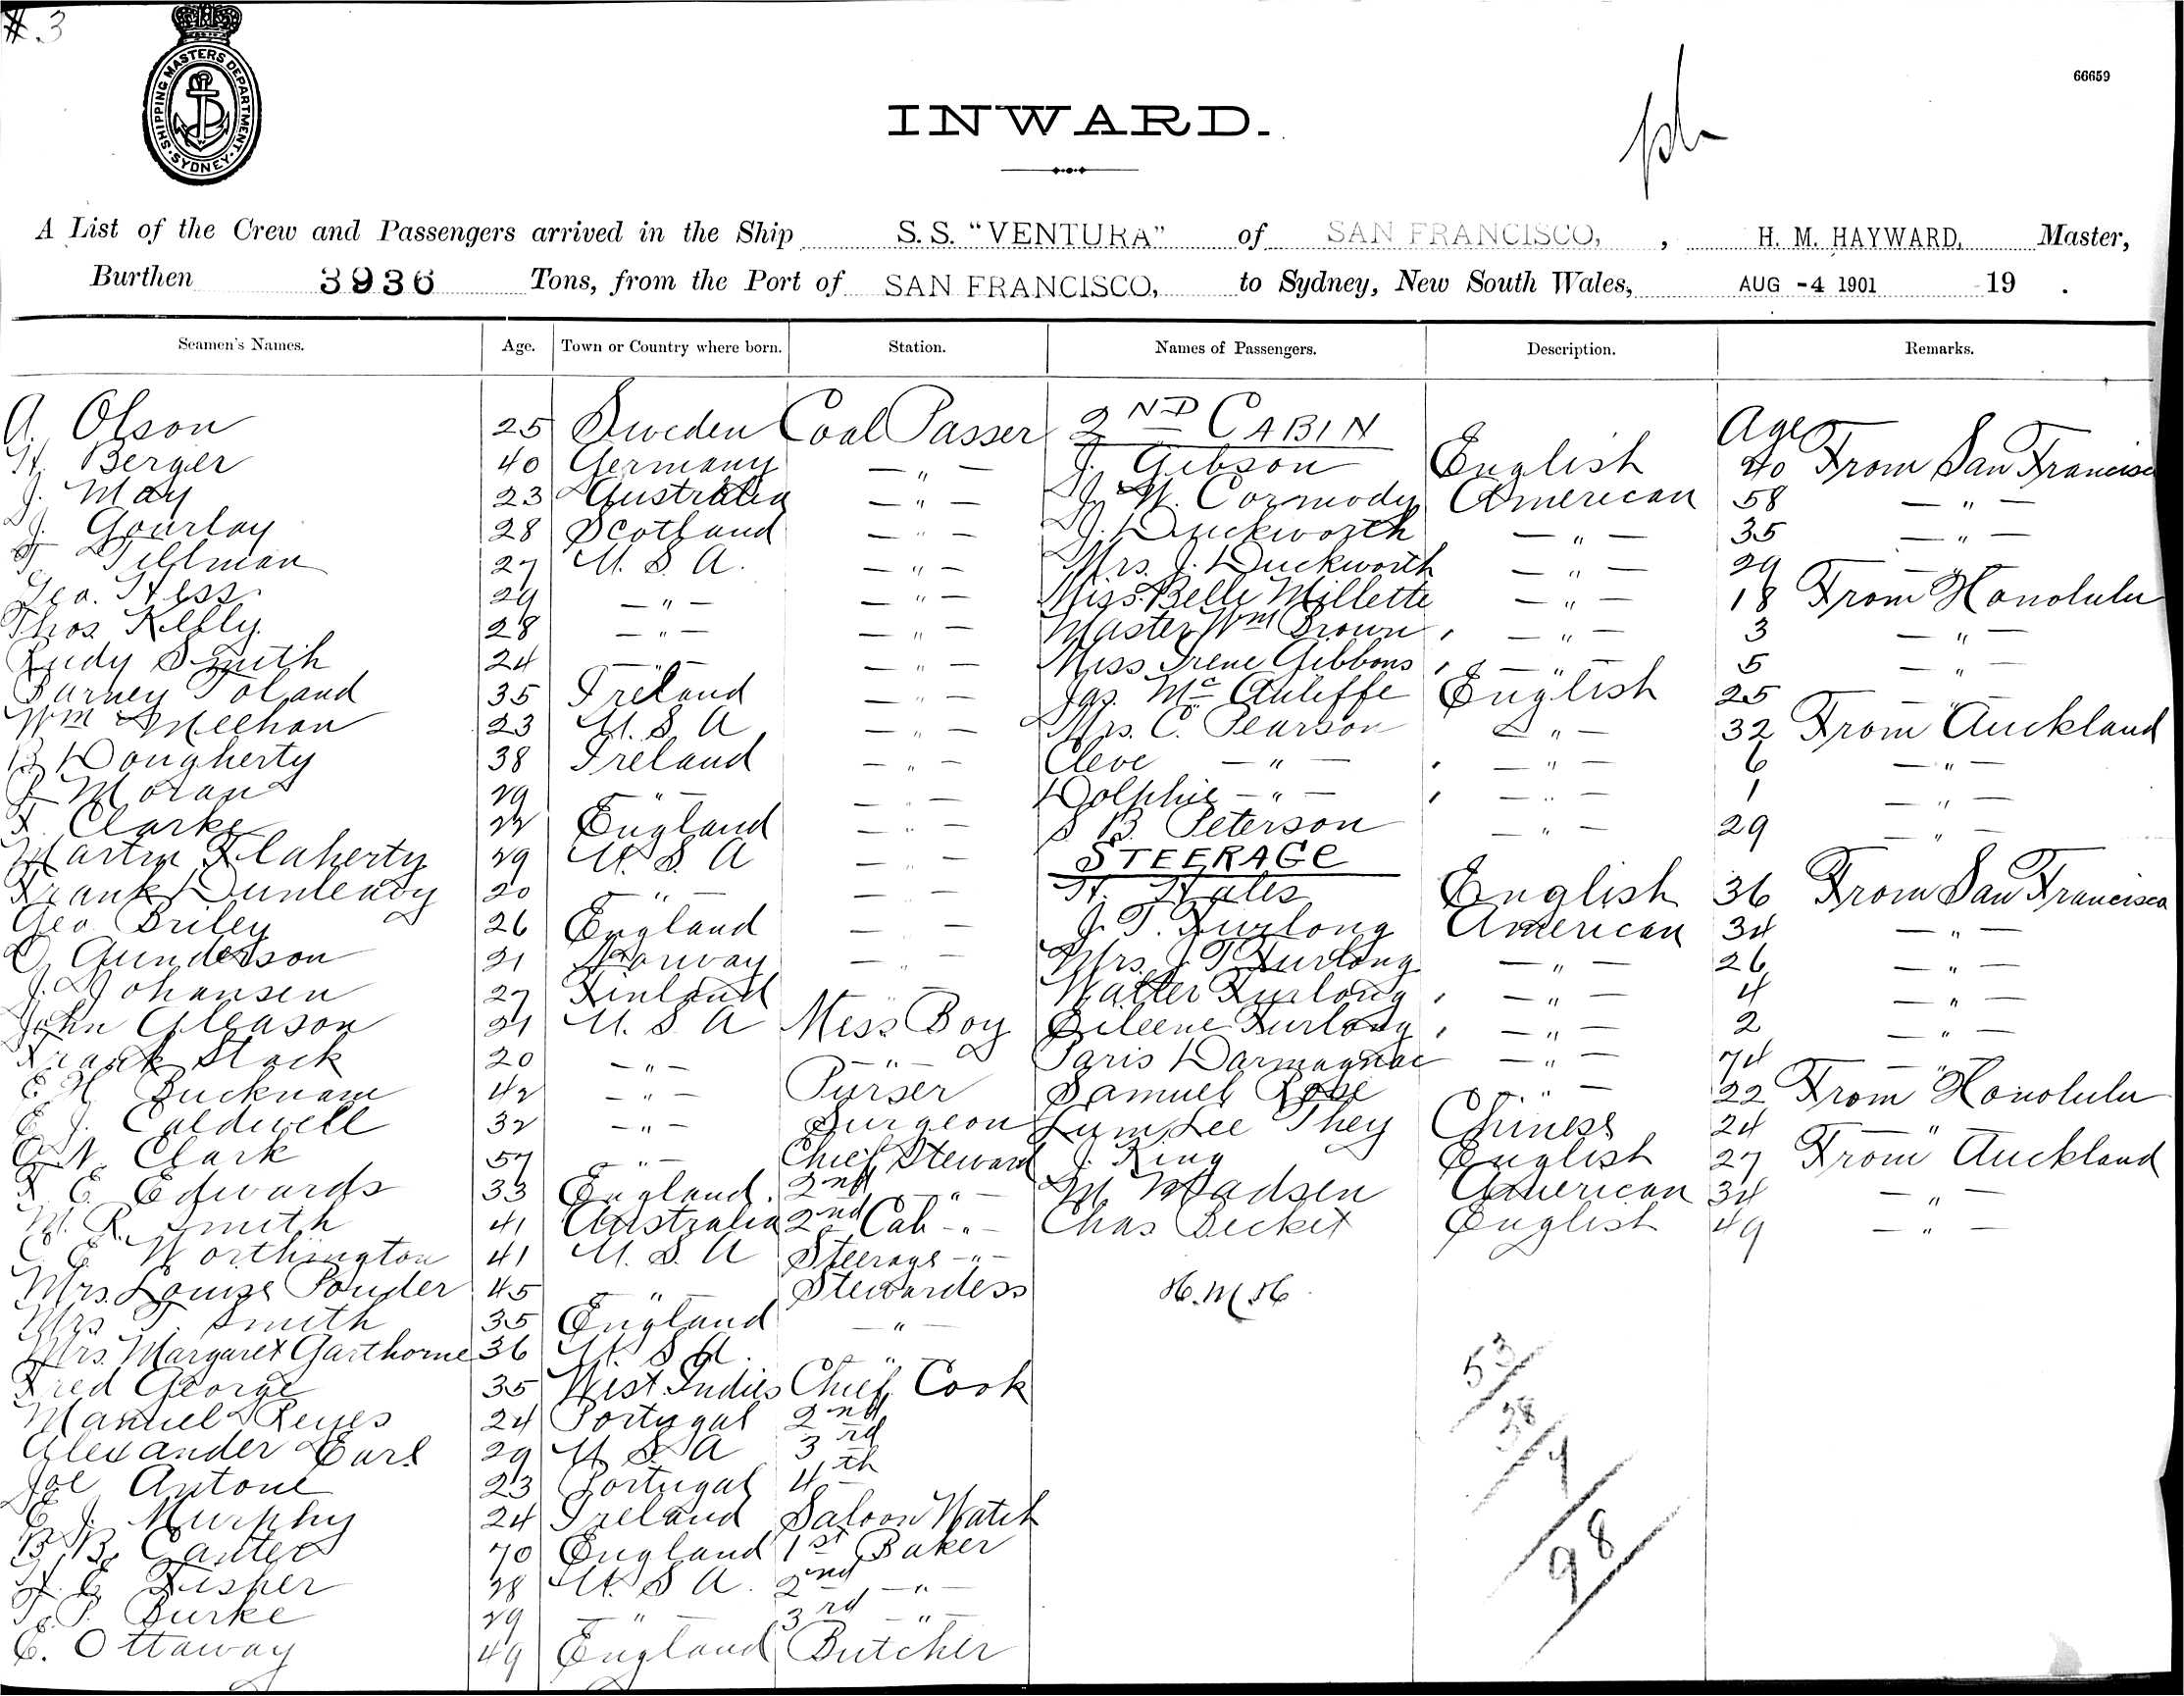 #3
SHIPPING MASTERS DEPARTMENT SYDNEY
66659
INWARD.
A List of the Crew and Passengers arrived in the Ship S.S. "VENTURA" of SAN FRANCISCO, , H. M. HAYWARD, Master,
Burthen 3936 Tons, from the Port of SAN FRANCISCO, to Sydney, New South Wales, AUG -4 1901 19 .
Seamen's Names. Age. Town or Country where born. Station. Names of Passengers. Description. Remarks.
A. Olson 25 Sweden Coal Passer 2ND CABIN Age
H. Berger 40 Germany — " — J. Gibson English 40 From San Francisco
J. May 23 Australia — " — J. W. Cormody American 58 — " —
J. Gourlay 28 Scotland — " — J. Duckworth — " — 35 — " —
T. Tillman 27 U. S. A. — " — Mrs. J. Duckworth — " — 29 — " —
Geo. Hess 29 — " — — " — Miss Belle Millette — " — 18 From Honolulu
Thos. Kelly 28 — " — — " — Master Wm Brown — " — 3 — " —
Rudy Smith 24 — " — — " — Miss Irene Gibbons — " — 5 — " —
Barney Toland 35 Ireland — " — Jas. Mc Auliffe English 25 — " —
Wm Meehan 23 U. S. A — " — Mrs. C. Pearson — " — 32 From Auckland
B Dougherty 38 Ireland — " — Cleve — " — — " — 6 — " —
J Moran 29 — " — — " — Dolphie — " — — " — 1 — " —
F. Clarke 22 England — " — S B. Peterson — " — 29 — " —
Martin Flaherty 29 U. S. A — " — STEERAGE
Frank Dunleavy 20 — " — — " — H. Hales English 36 From San Francisco
Geo Briley 26 England — " — J. T. Furlong American 34 — " —
O. Gunderson 21 Norway — " — Mrs. J T Furlong — " — 26 — " —
J. Johansen 27 Finland — " — Walter Furlong — " — 4 — " —
John Gleason 21 U. S A Mess Boy Eileene Furlong — " — 2 — " —
Frank Stack 20 — " — — " — Paris Darmagnac — " — 74 — " —
E. H. Bucknam 42 — " — Purser Samuel Rose — " — 22 From Honolulu
E J. Caldwell 32 — " — Surgeon Lum Lee They Chinese 24 — " —
C. N. Clark 57 — " — Chief Steward J. King English 27 From Auckland
F. E. Edwards 33 England. 2nd — " — M. Madsen American 34 — " —
M. R. Smith 41 Australia 2nd Cab - " - Chas Becket English 49 — " —
C. E. Worthington 41 U. S. A Steerage - " -
Mrs. Louise Ponder 45 — " — Stewardess H.M.H.
Mrs T. Smith 35 England — " —
Mrs. Margaret Garthorne 36 U. S. A. — " —
Fred George 35 West Indies Chief Cook 53
Manuel Reyes 24 Portugal 2nd 38
Alexander Earl 29 U S A 3rd 7
Joe Antone 23 Portugal 4th
E J. Murphy 24 Ireland Saloon Watch 98
B. B. Canter 70 England 1st Baker
H. E. Fisher 28 U. S A. 2nd — " —
T. P. Burke 29 — " — 3rd — " —
E. Ottaway 49 England Butcher